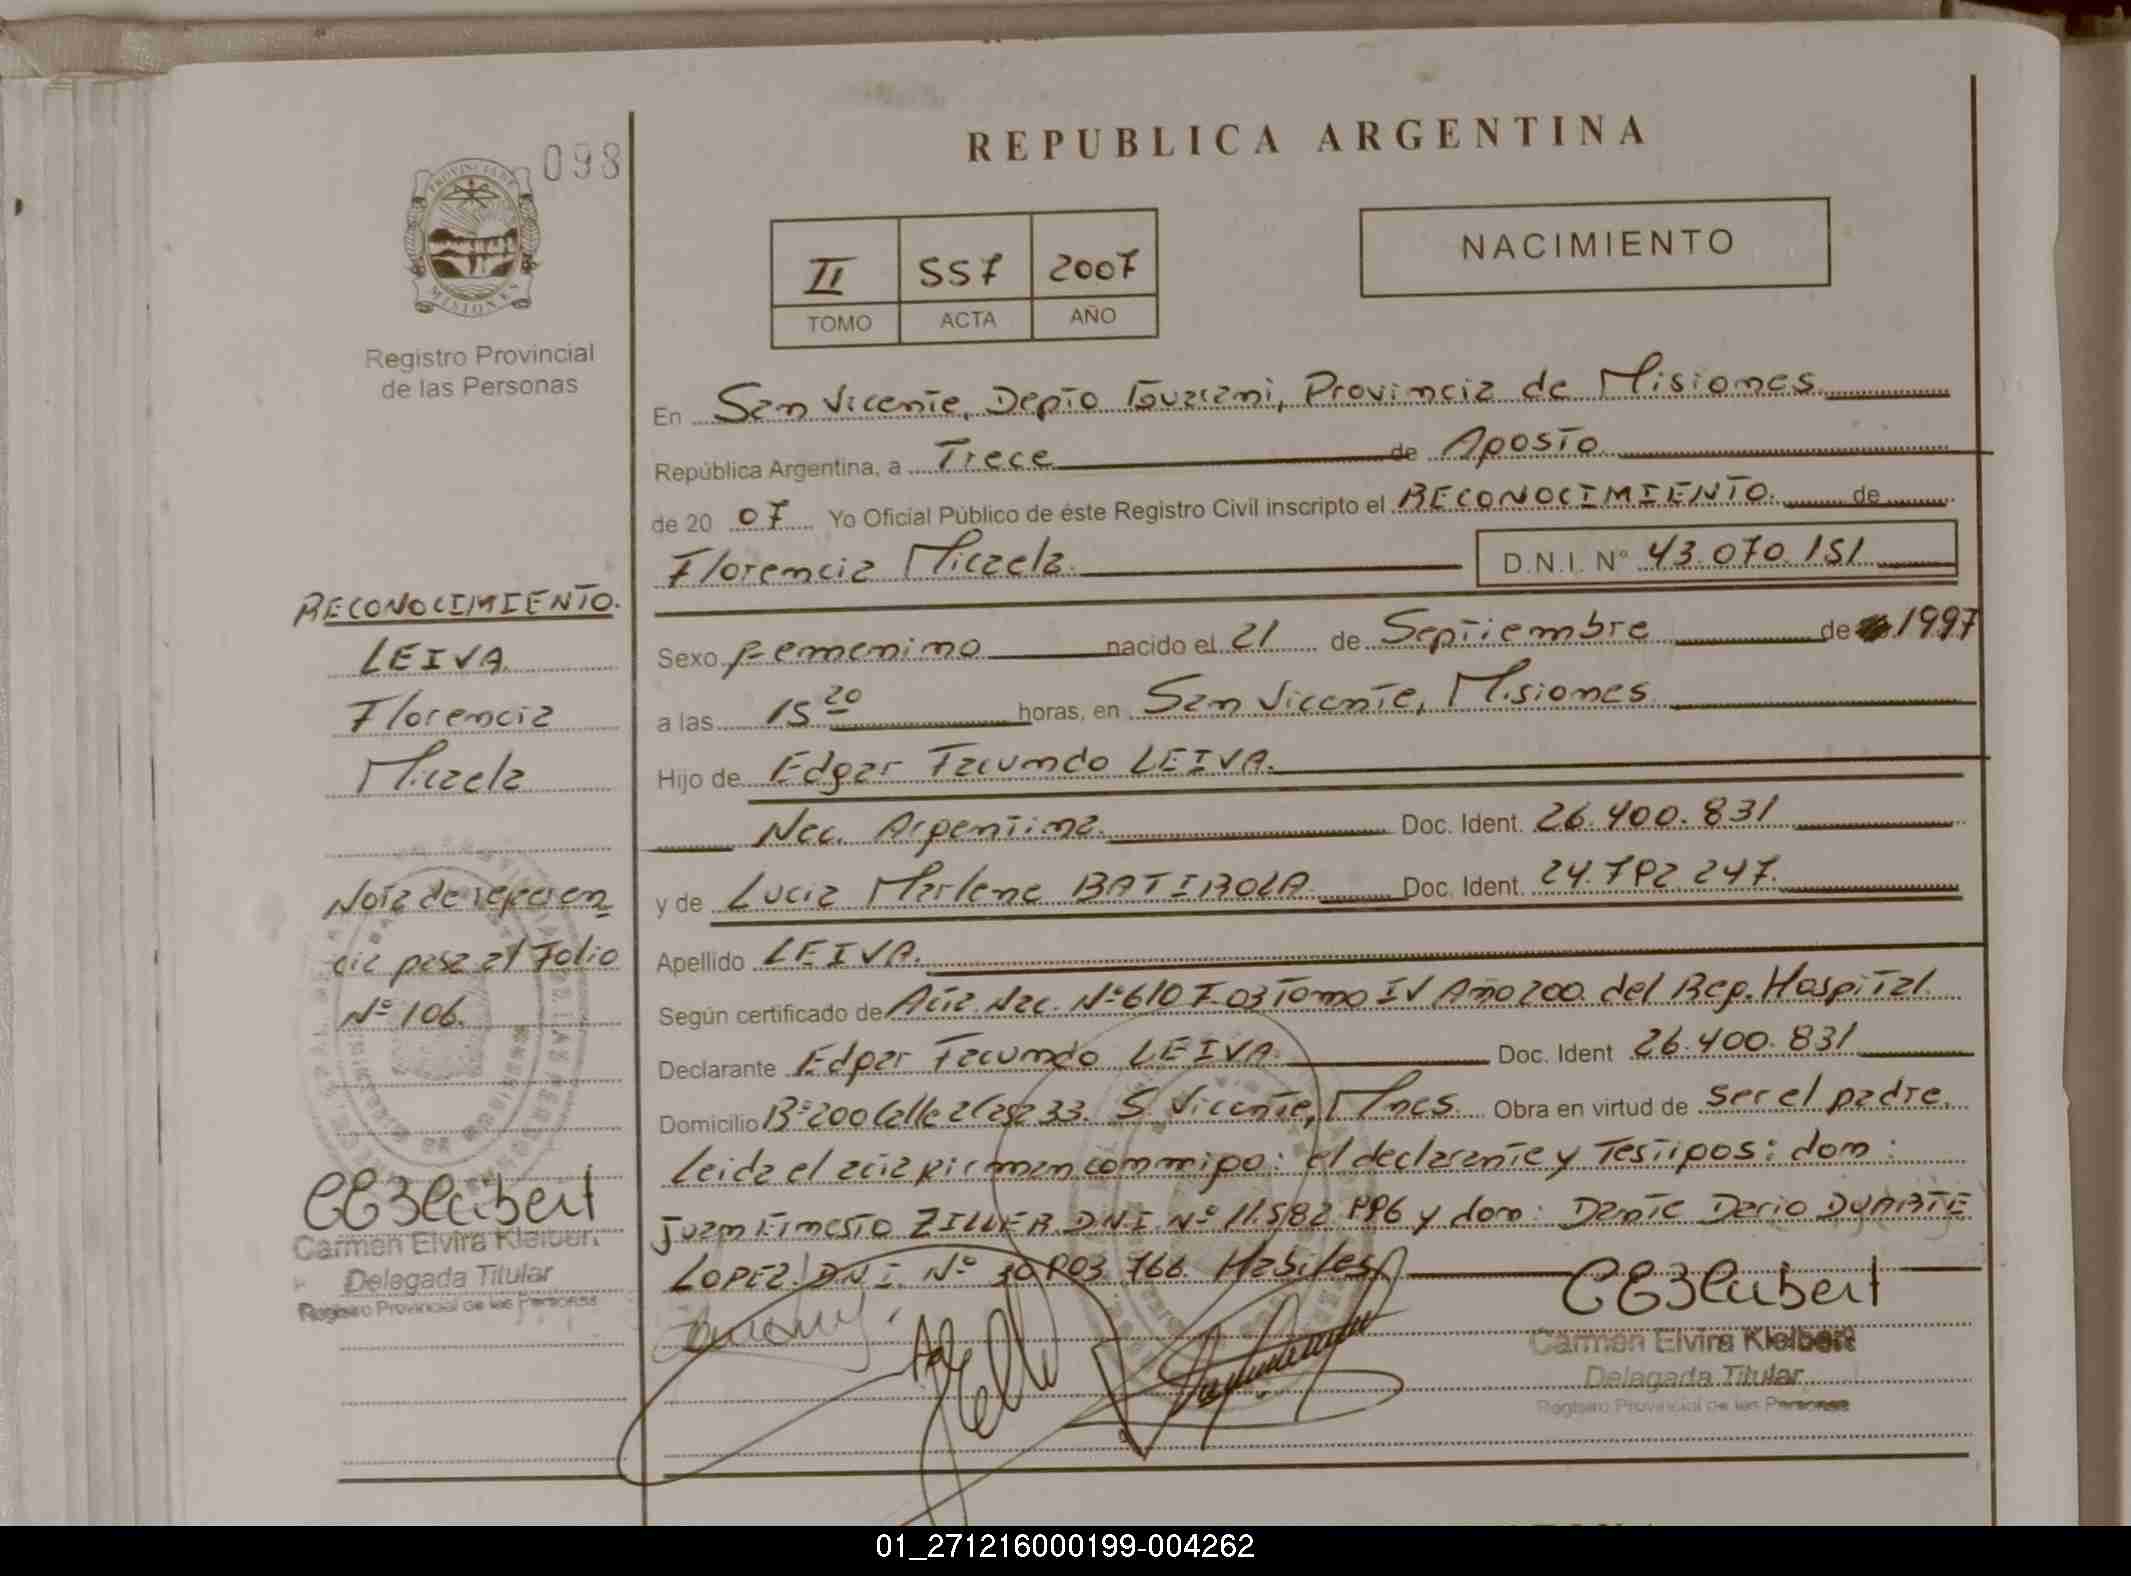 098
PROVINCIA DE
MISIONES
Registro Provincial
de las Personas
REPUBLICA ARGENTINA
II 557 2007
TOMO ACTA AÑO
NACIMIENTO
En San Vicente, Depto Guarani, Provincia de Misiones
República Argentina, a Trece de Agosto
de 20 07 Yo Oficial Público de éste Registro Civil inscripto el RECONOCIMIENTO. de
Florencia Micaela. D.N.I. N° 43.070.151
Sexo Femenino nacido el 21 de Septiembre de 1997
a las 15 20 horas, en San Vicente, Misiones
Hijo de Edgar Facundo LEIVA.
Nac. Argentina. Doc. Ident. 26.400.831
y de Lucia Marlene Doc. Ident. 24.792.247.
Apellido LEIVA.
Según certificado de Acta Nac. Nº 610 F-03 Tomo IV Año 200. del Reg. Hospital
Declarante Edgar Facundo LEIVA. Doc. Ident 26.400.831
Domicilio Bº 200 Calle 2 Casa 33. S. Vicente, Mnes Obra en virtud de ser el padre.
Leida el acta firman conmigo: el declarante y Testigos: don:
Juan Ernesto ZILLER D.N.I. Nº 11.582.996 y don: Dante Dario DUARTE
LOPEZ. D.N.I. Nº 30.903.766. Habiles
Carmen Elvira Kleibert
Delegada Titular
Registro Provincial de las Personas
RECONOCIMIENTO.
LEIVA
Florencia
Micaela
Nota de referen
cia pasa al Folio
Nº 106.
Carmen Elvira Kleibert
Delegada Titular
Registro Provincial de las Personas
01_271216000199-004262